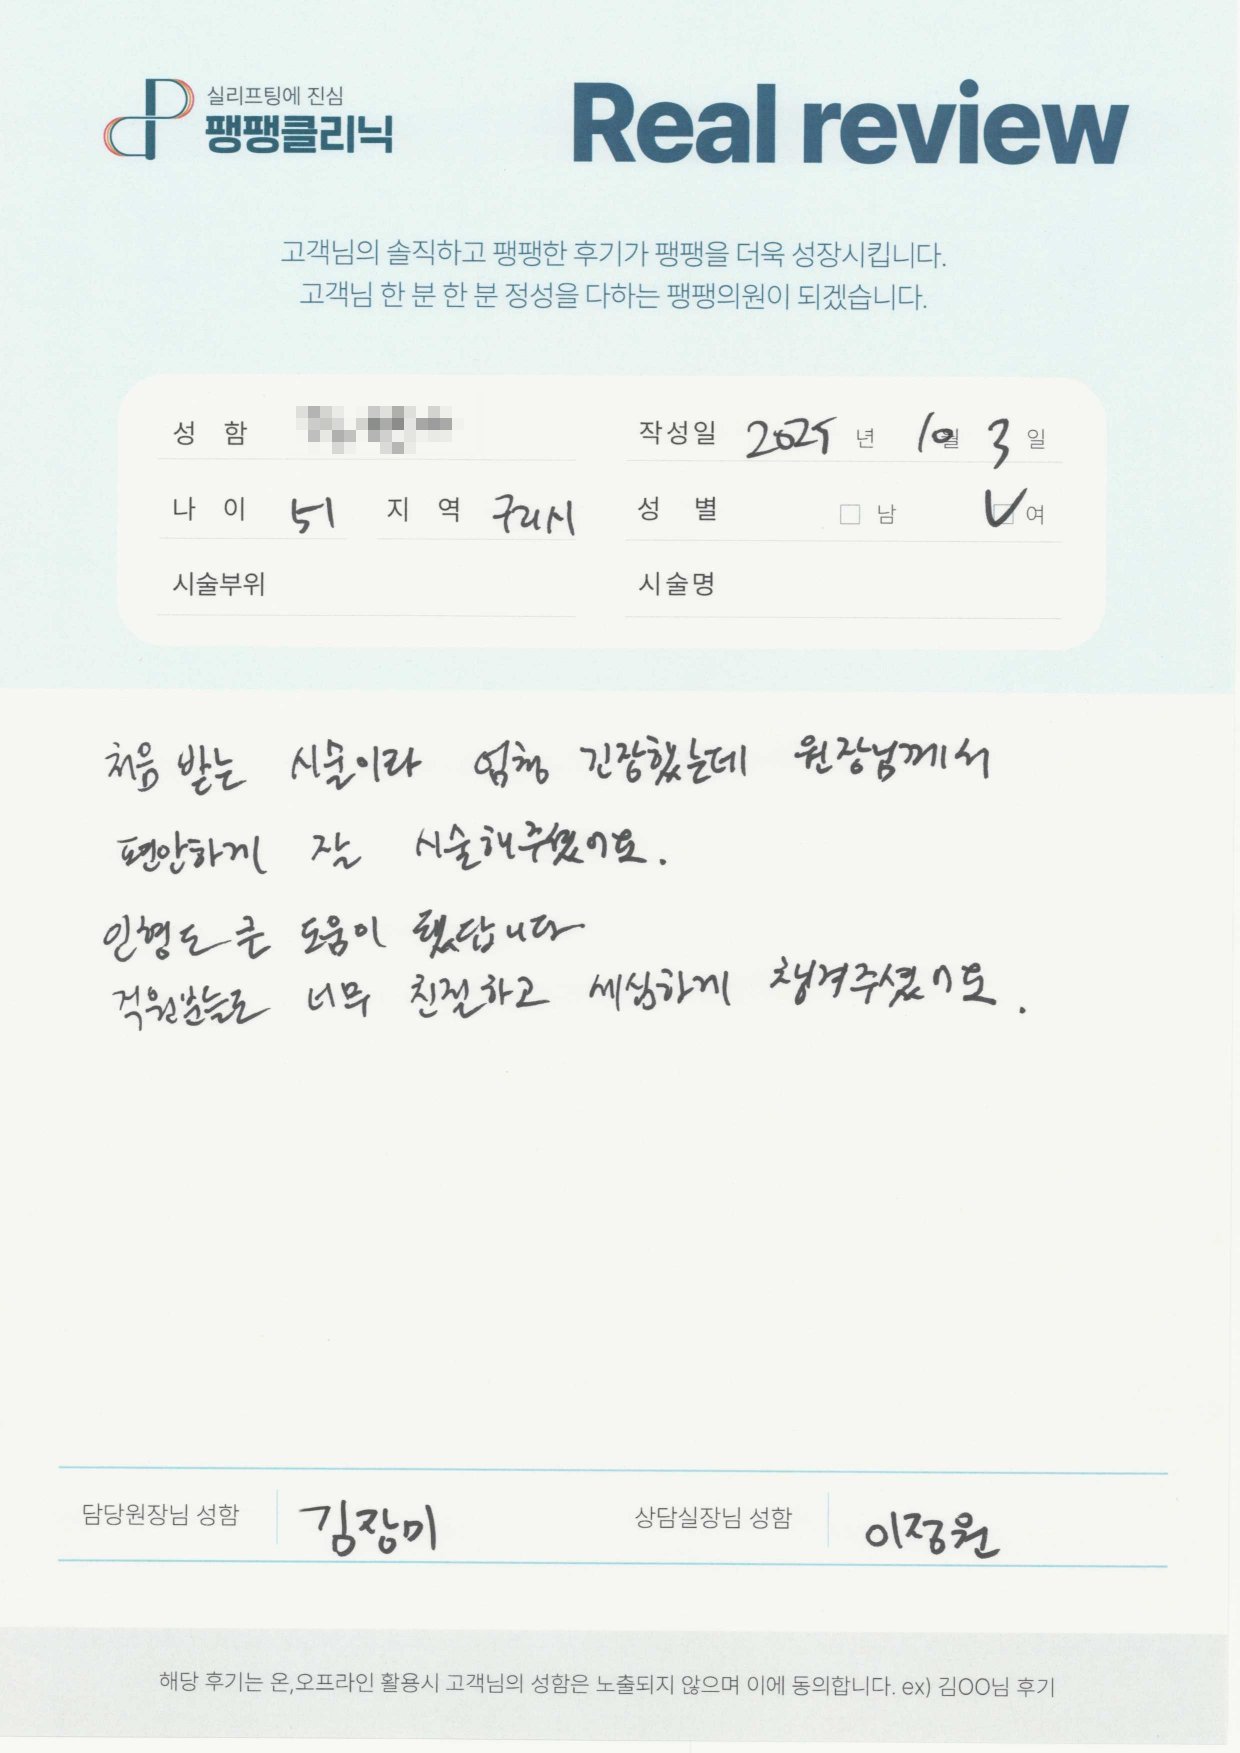 실리프팅에 진심
팽팽클리닉
Real review
고객님의 솔직하고 팽팽한 후기가 팽팽을 더욱 성장시킵니다.
고객님 한 분 한 분 정성을 다하는 팽팽의원이 되겠습니다.
성 함 작성일 2025 년 10 월 3 일
나 이 51 지 역 구리시 성 별 남 여
시술부위 시술명
처음 받는 시술이라 엄청 긴장했는데 원장님께서
편안하게 잘 시술해주셨어요.
인형도 큰 도움이 됐답니다
직원분들도 너무 친절하고 세심하게 챙겨주셨어요.
담당원장님 성함 김장미 상담실장님 성함 이정원
해당 후기는 온,오프라인 활용시 고객님의 성함은 노출되지 않으며 이에 동의합니다. ex) 김OO님 후기